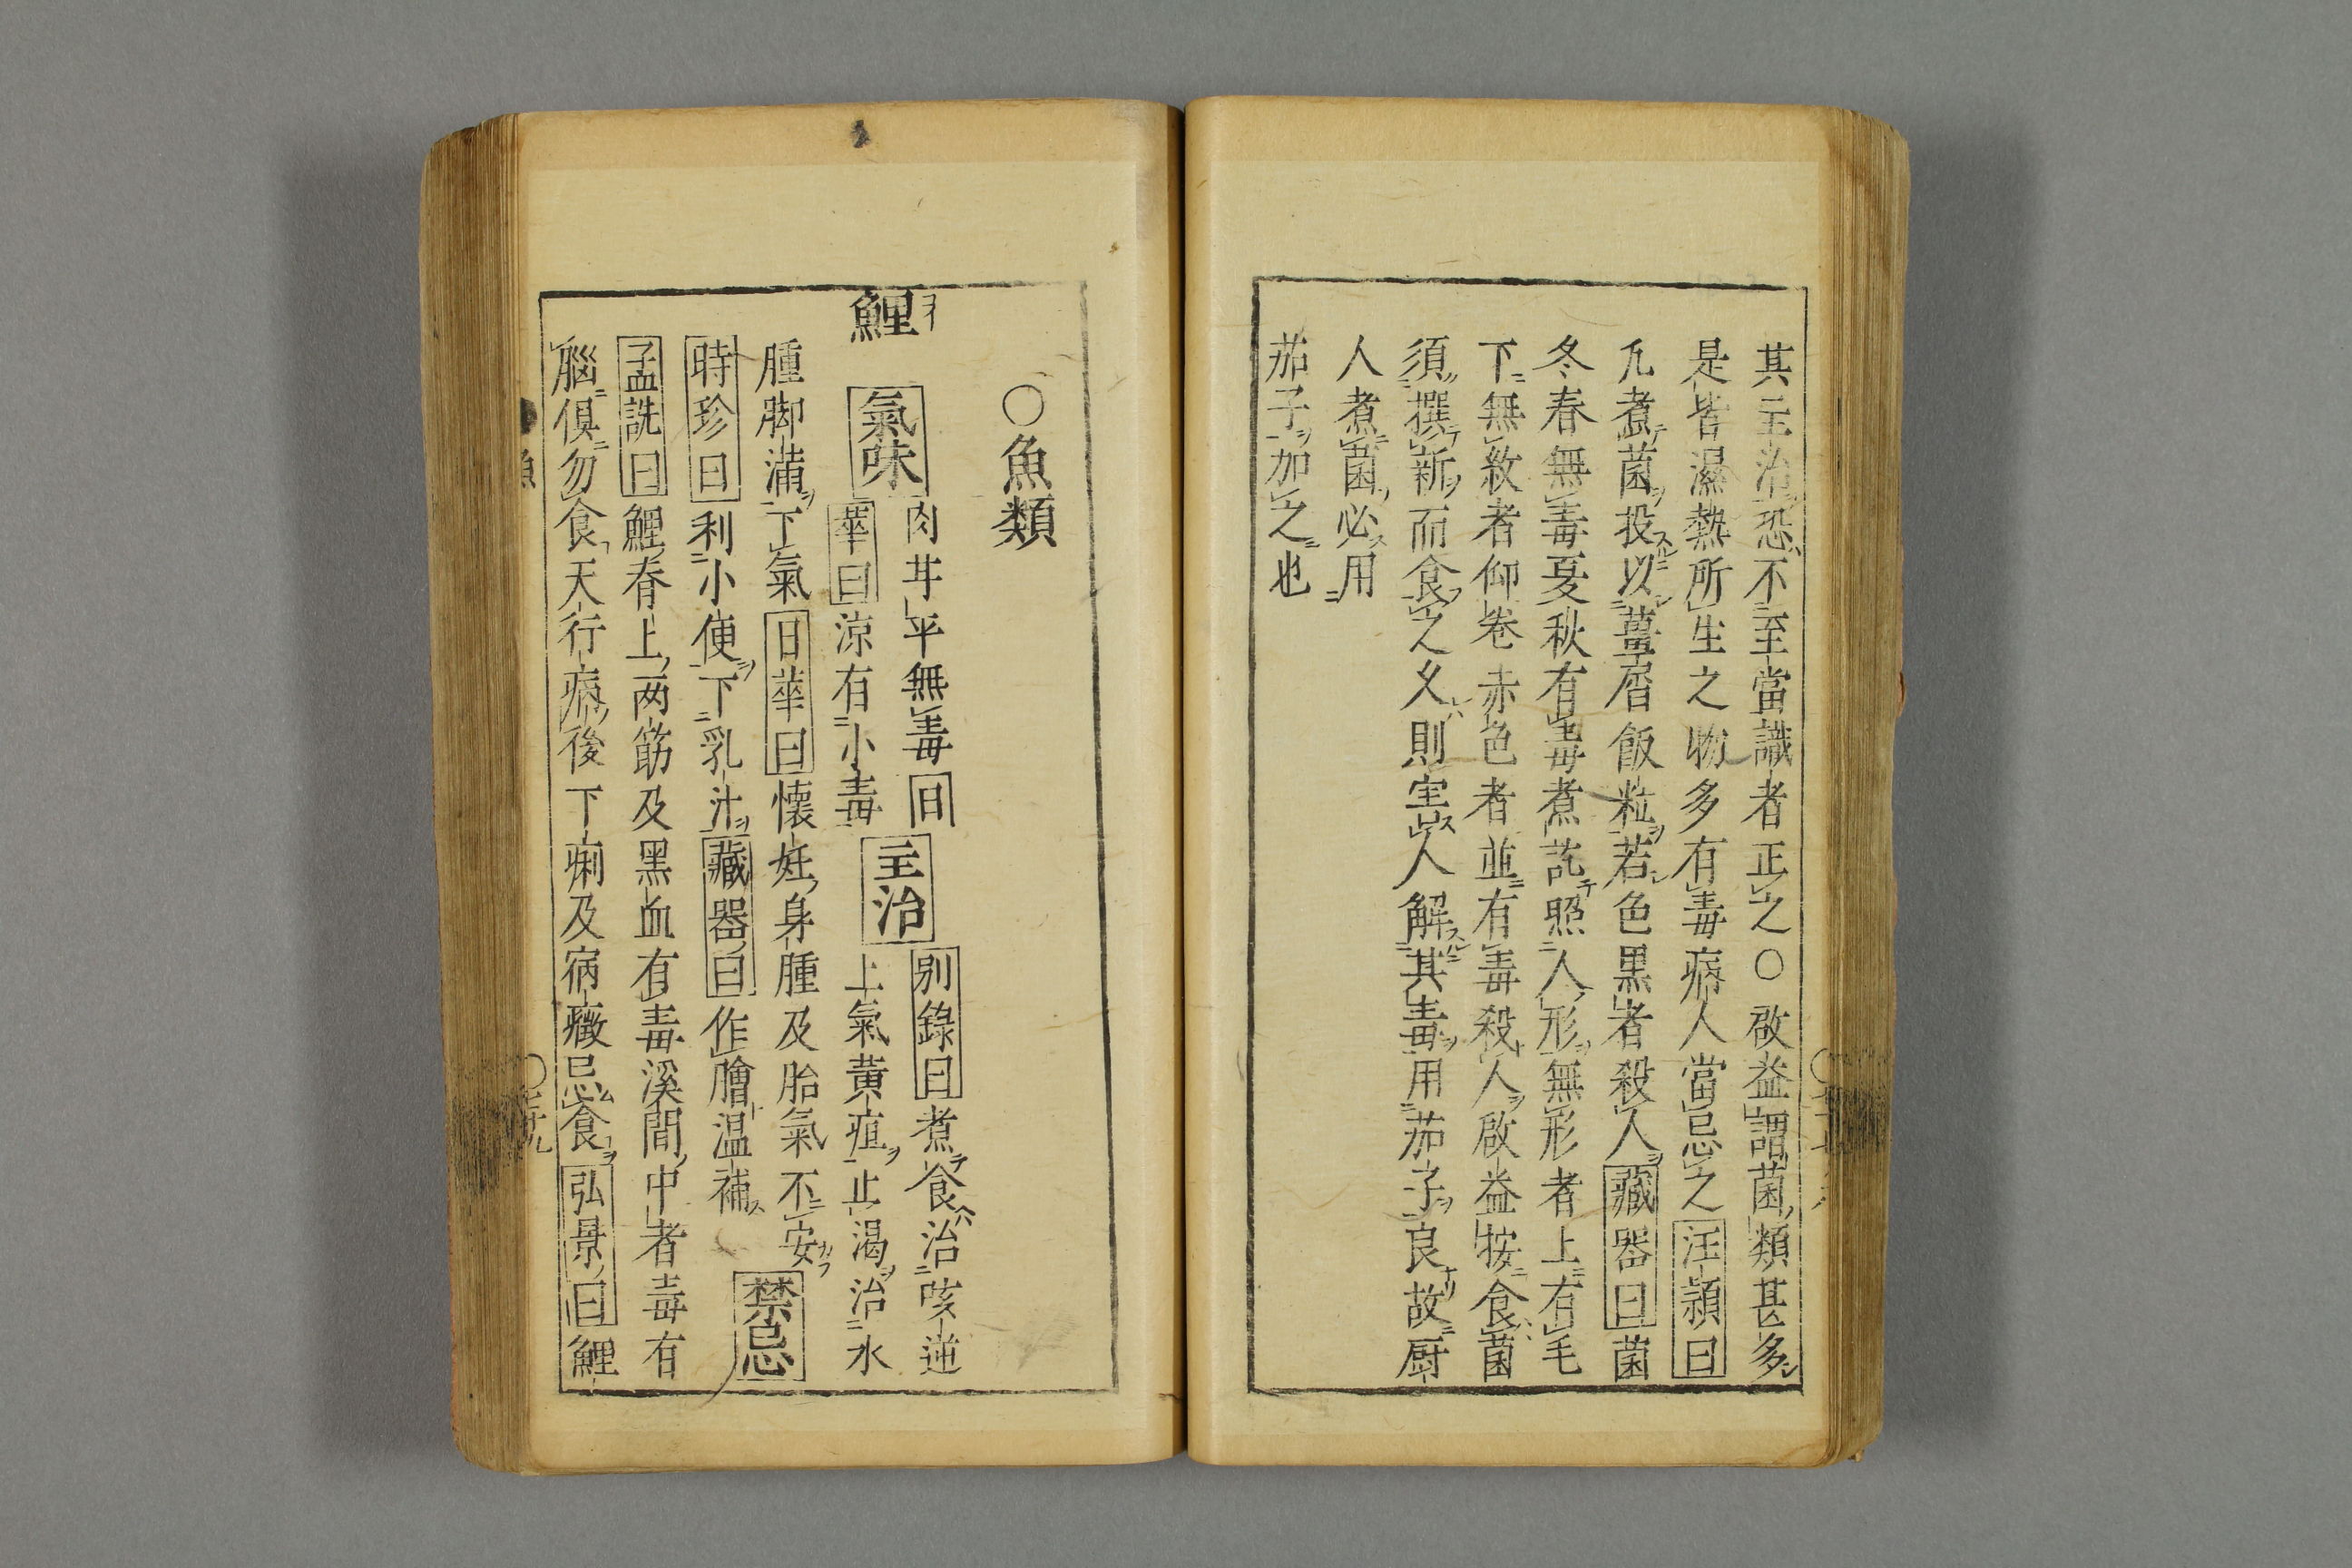 其主治恐不至當識者正之○啟益謂菌類甚多
是皆濕熱所生之物多有毒病人當忌之汪頴曰
凡煮菌投以薑屑飯粒若色黒者殺人藏器曰菌
冬春無毒夏秋有毒煮訖照人無形者上有毛
下無紋者仰卷赤色者並有毒殺人啟益按食菌
須撰新而食之久則害人解其毒用茄子良故厨
人煮菌必用
茄子加之也
○魚類
鯉
氣味 肉甘平無毒日
華曰涼有小毒 主治 別錄曰煮食治咳逆
上氣黄疸止渇治水
腫脚満下氣日華曰懷妊身腫及胎氣不安
時珍曰利小便下乳汁藏器曰作膾温補 禁忌
孟詵曰鯉脊上两筋及黒血有毒溪間中者毒有
腦俱勿食天行病後下痢及宿癥忌食弘景曰鯉